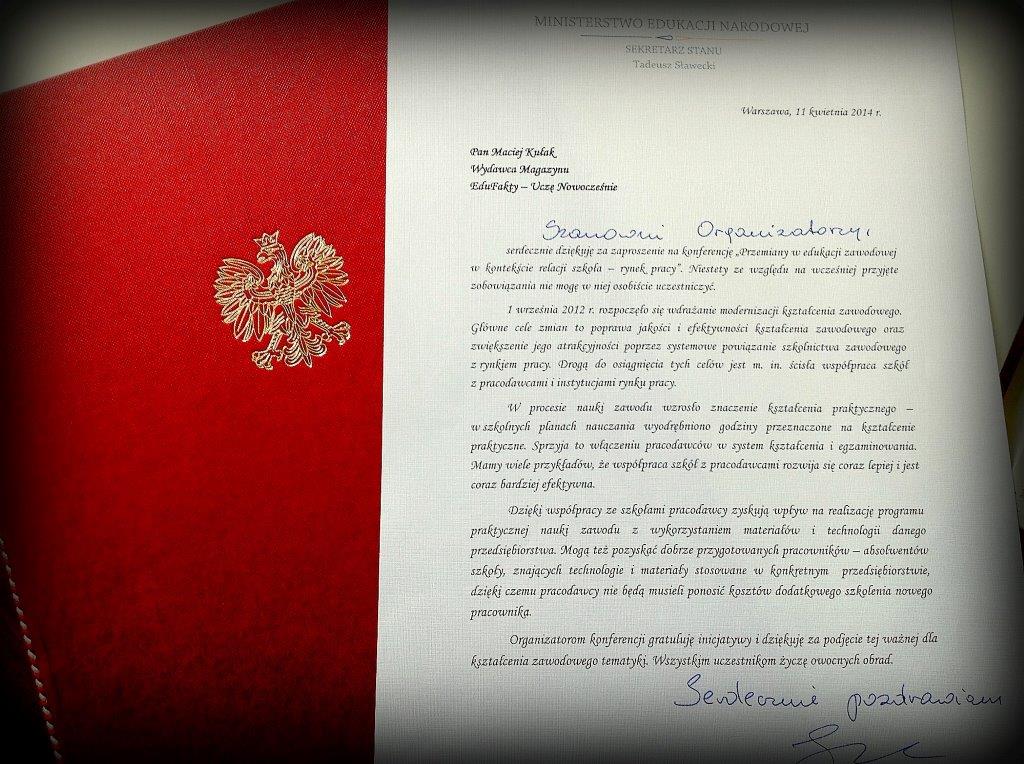 MINISTERSTWO EDUKACJI NARODOWEJ
SEKRETARZ STANU
Tadeusz Sławecki
Warszawa, 11 kwietnia 2014 r.
Pan Maciej Kułak
Wydawca Magazynu
EduFakty – Uczę Nowocześnie
Szanowni Organizatorzy,
serdecznie dziękuję za zaproszenie na konferencję „Przemiany w edukacji zawodowej
w kontekście relacji szkoła – rynek pracy”. Niestety ze względu na wcześniej przyjęte
zobowiązania nie mogę w niej osobiście uczestniczyć.
1 września 2012 r. rozpoczęło się wdrażanie modernizacji kształcenia zawodowego.
Główne cele zmian to poprawa jakości i efektywności kształcenia zawodowego oraz
zwiększenie jego atrakcyjności poprzez systemowe powiązanie szkolnictwa zawodowego
z rynkiem pracy. Drogą do osiągnięcia tych celów jest m. in. ścisła współpraca szkół
z pracodawcami i instytucjami rynku pracy.
W procesie nauki zawodu wzrosło znaczenie kształcenia praktycznego –
w szkolnych planach nauczania wyodrębniono godziny przeznaczone na kształcenie
praktyczne. Sprzyja to włączeniu pracodawców w system kształcenia i egzaminowania.
Mamy wiele przykładów, że współpraca szkół z pracodawcami rozwija się coraz lepiej i jest
coraz bardziej efektywna.
Dzięki współpracy ze szkołami pracodawcy zyskują wpływ na realizację programu
praktycznej nauki zawodu z wykorzystaniem materiałów i technologii danego
przedsiębiorstwa. Mogą też pozyskać dobrze przygotowanych pracowników – absolwentów
szkoły, znających technologie i materiały stosowane w konkretnym przedsiębiorstwie,
dzięki czemu pracodawcy nie będą musieli ponosić kosztów dodatkowego szkolenia nowego
pracownika.
Organizatorom konferencji gratuluję inicjatywy i dziękuję za podjęcie tej ważnej dla
kształcenia zawodowego tematyki. Wszystkim uczestnikom życzę owocnych obrad.
Serdecznie pozdrawiam